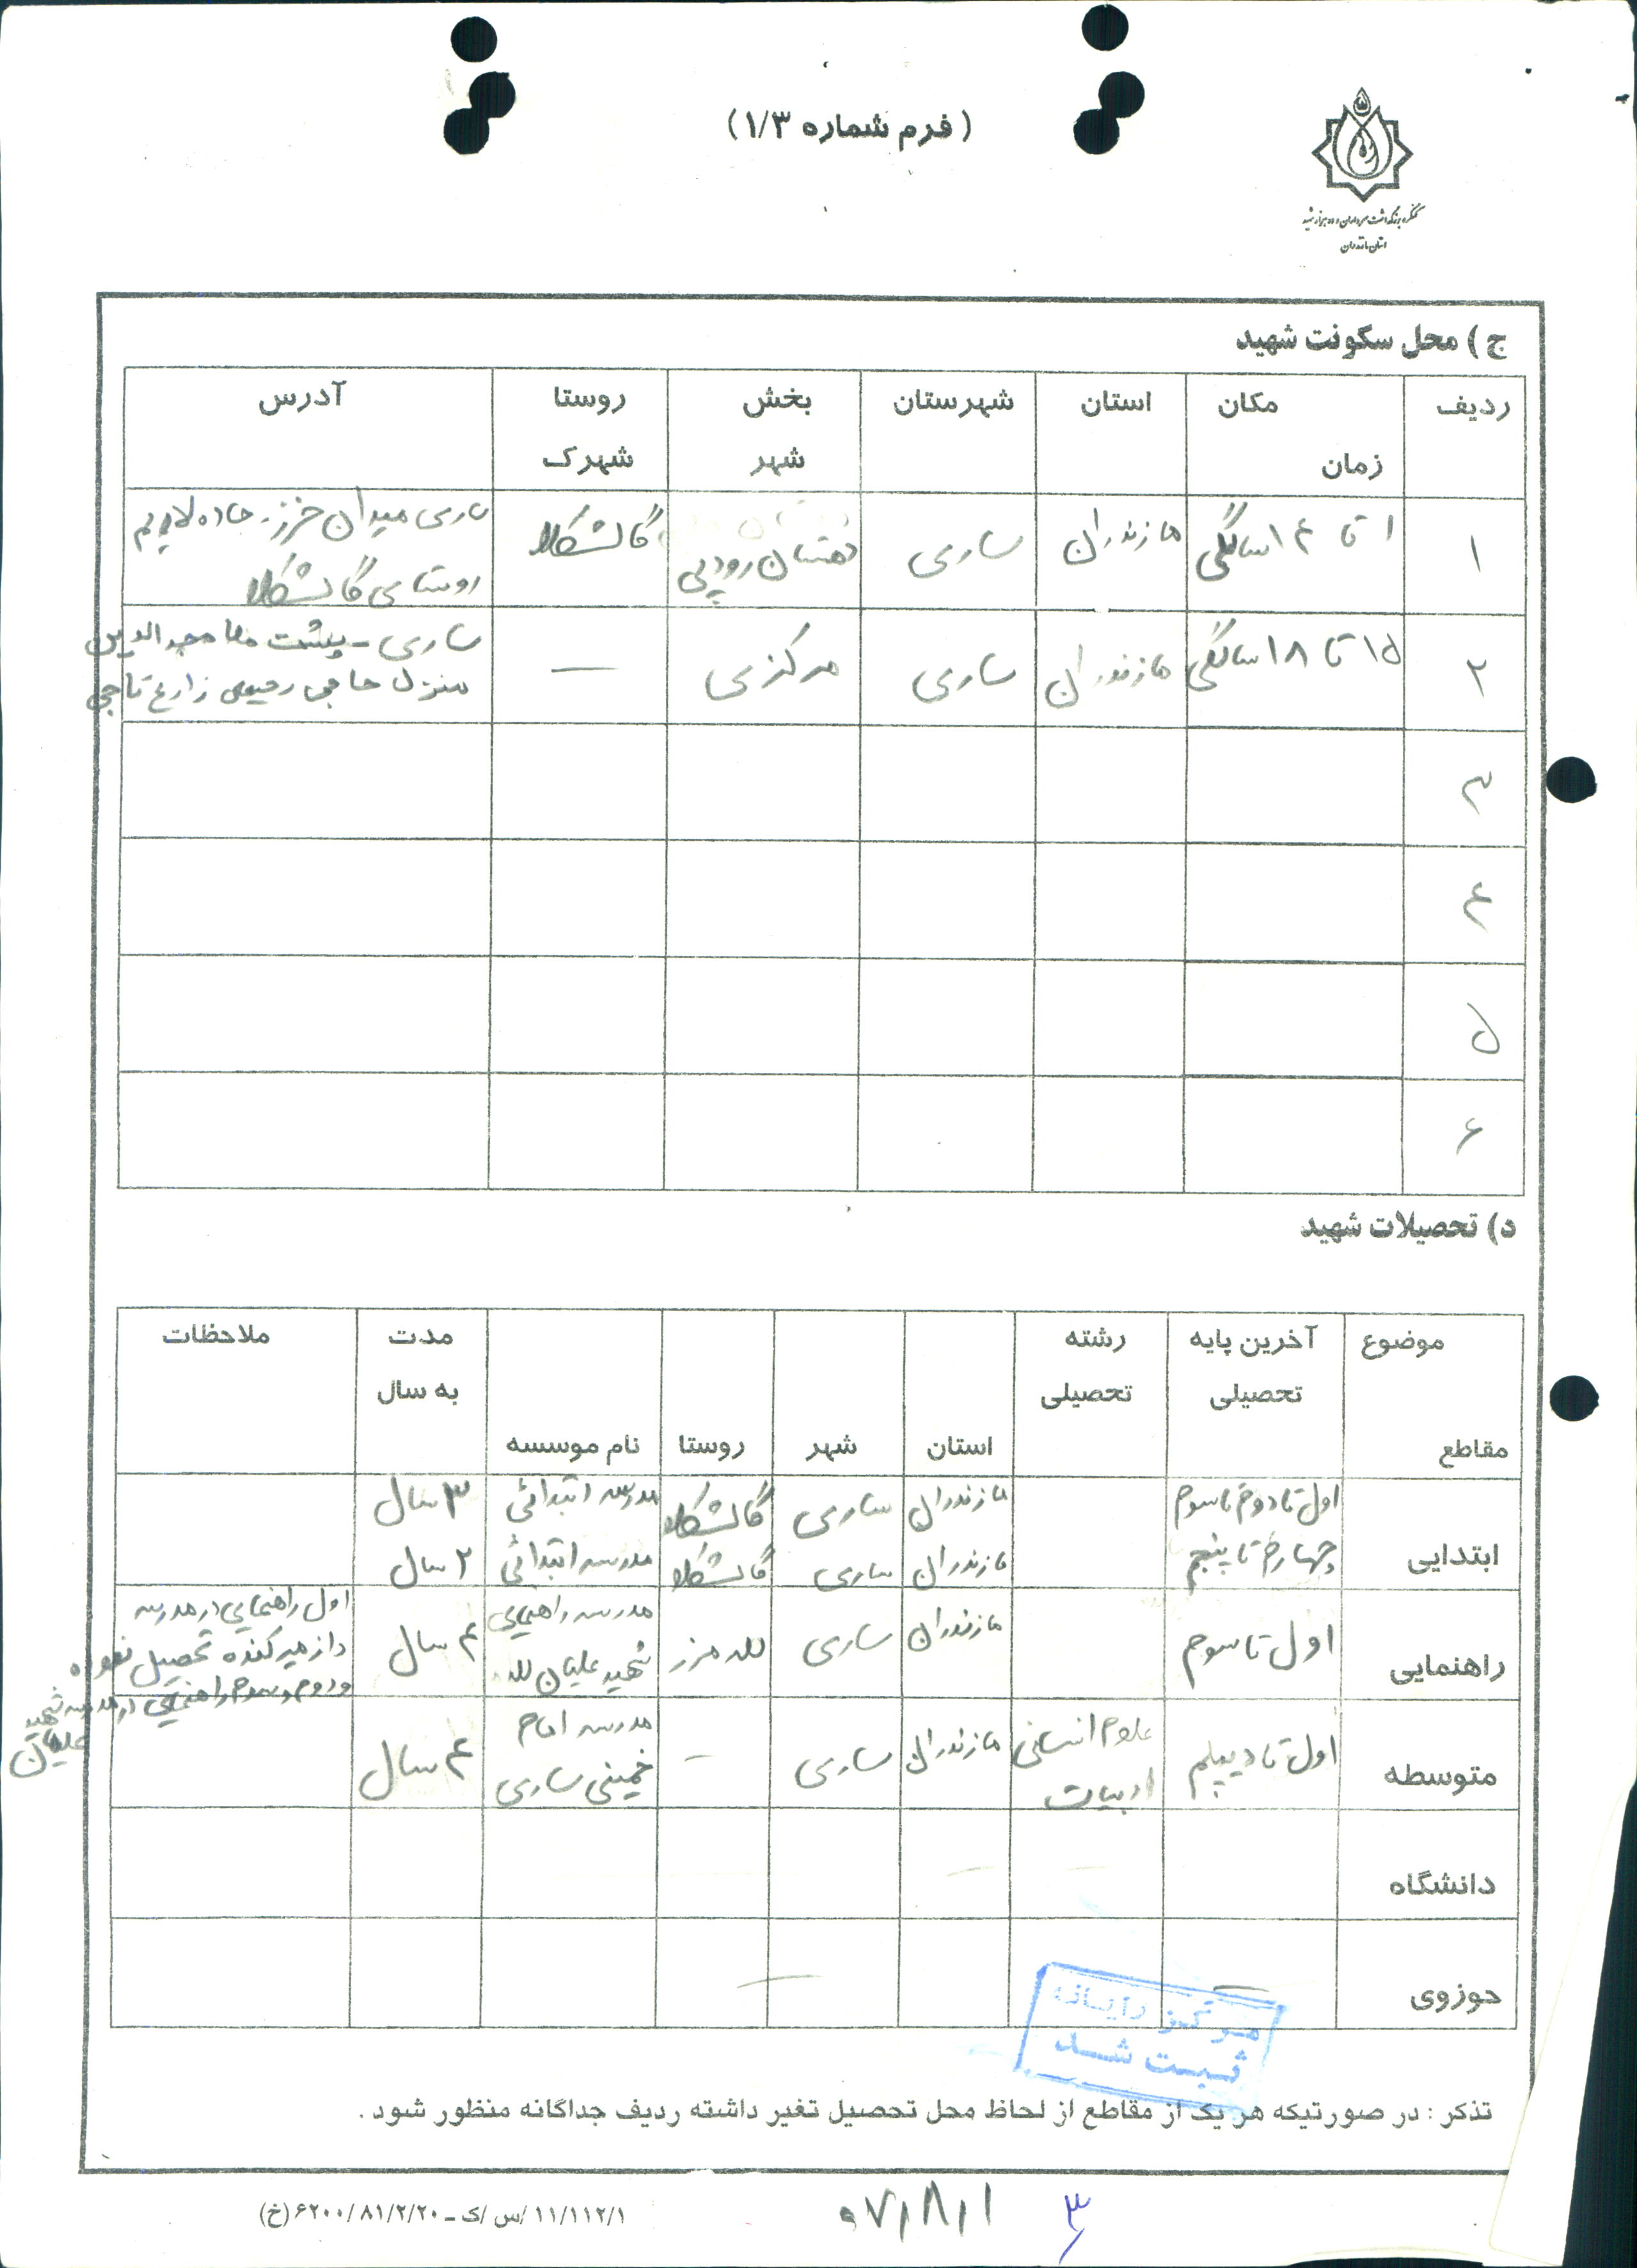 ( فرم شماره ۱/۳)
کنگره بزرگداشت سرداران و ده هزار شهید
استان مازندران
ج ) محل سکونت شهید
ردیف مکان زمان استان شهرستان بخش شهر روستا شهرک آدرس
۱ ۱ تا ۱۴ سالگی مازندران ساری دهستان رودپی گالشکلا ساری میدان خزر. جاده لاریم
روستای گالشکلا
۲ ۱۵ تا ۱۸ سالگی مازندران ساری مرکزی — ساری - پشت ملا مجدالدین
منزل حاجی رحیمی زارع تاجی
۳
۴
۵
۶
د) تحصیلات شهید
موضوع مقاطع آخرین پایه تحصیلی رشته تحصیلی استان شهر روستا نام موسسه مدت به سال ملاحظات
ابتدایی اول تا دوم تا سوم مازندران ساری گالشکلا مدرسه ابتدائی ۳ سال
چهارم تا پنجم مازندران ساری گالشکلا مدرسه ابتدائی ۲ سال
راهنمایی اول تا سوم مازندران ساری لله مرز مدرسه راهنمایی
شهید علیان لله ۴ سال
اول راهنمایی در مدرسه
دازمیرکنده تحصیل نموده
و دوم و سوم راهنمایی در مدرسه شهید
علیان
متوسطه اول تا دیپلم علوم انسانی
ادبیات مازندران ساری - مدرسه امام
خمینی ساری ۴ سال
دانشگاه
حوزوی —
مرکز رایانه
ثبت شد
تذکر : در صورتیکه هر یک از مقاطع از لحاظ محل تحصیل تغیر داشته ردیف جداگانه منظور شود .
۱۱/۱۱۲/۱ /س /ک – ۶۲۰۰/۸۱/۲/۲۰ (خ)
۰۷/۸/۱
۳